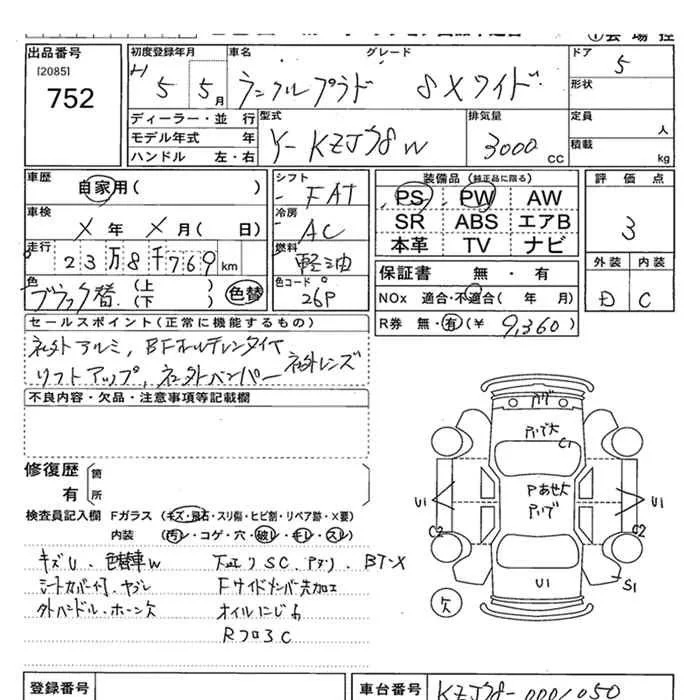 出品番号
[2085]
752
初度登録年月 車名 グレード ドア
H 5 5月 ランクルプラド SXワイド 5
形状
ディーラー・並 行 型式 排気量 定員
モデル年式 年 Y-KZJ78W 3000 CC 人
ハンドル 左・右 積載 kg
車歴 シフト 装備品 (純正品に限る) 評価点
自家用( ) FAT PS PW AW
車検 冷房 SR ABS エアB 3
X 年 X 月( 日) AC 本革 TV ナビ
走行 燃料 外装 内装
23万8千769km 軽油 保証書 無・有
色 色コード NOx 適合・不適合( 年 月) D C
ブラック替 (上 下) 色替 26P R券 無・有(¥ 9,360)
セールスポイント(正常に機能するもの)
社外アルミ、BFホールテレンタイヤ
リフトアップ、社外バンパー 社外レンズ
不良内容・欠品・注意事項等記載欄
修復歴 箇
有 所
検査員記入欄 Fガラス (キズ・飛石・スリ傷・ヒビ割・リペア跡・X要)
内装 (汚レ・コゲ・穴・破レ・キレ・スレ)
キズU、色替車W SC、 BT-X
シートカバー付、ヤブレ Fサイドメンバー先加工
外ハンドル、ホーン欠 オイルにじみ
RフロアC
C1
Pあせ大
U1 U1
C2 C2
U1 S1
欠
登録番号 車台番号 KZJ78-0001050